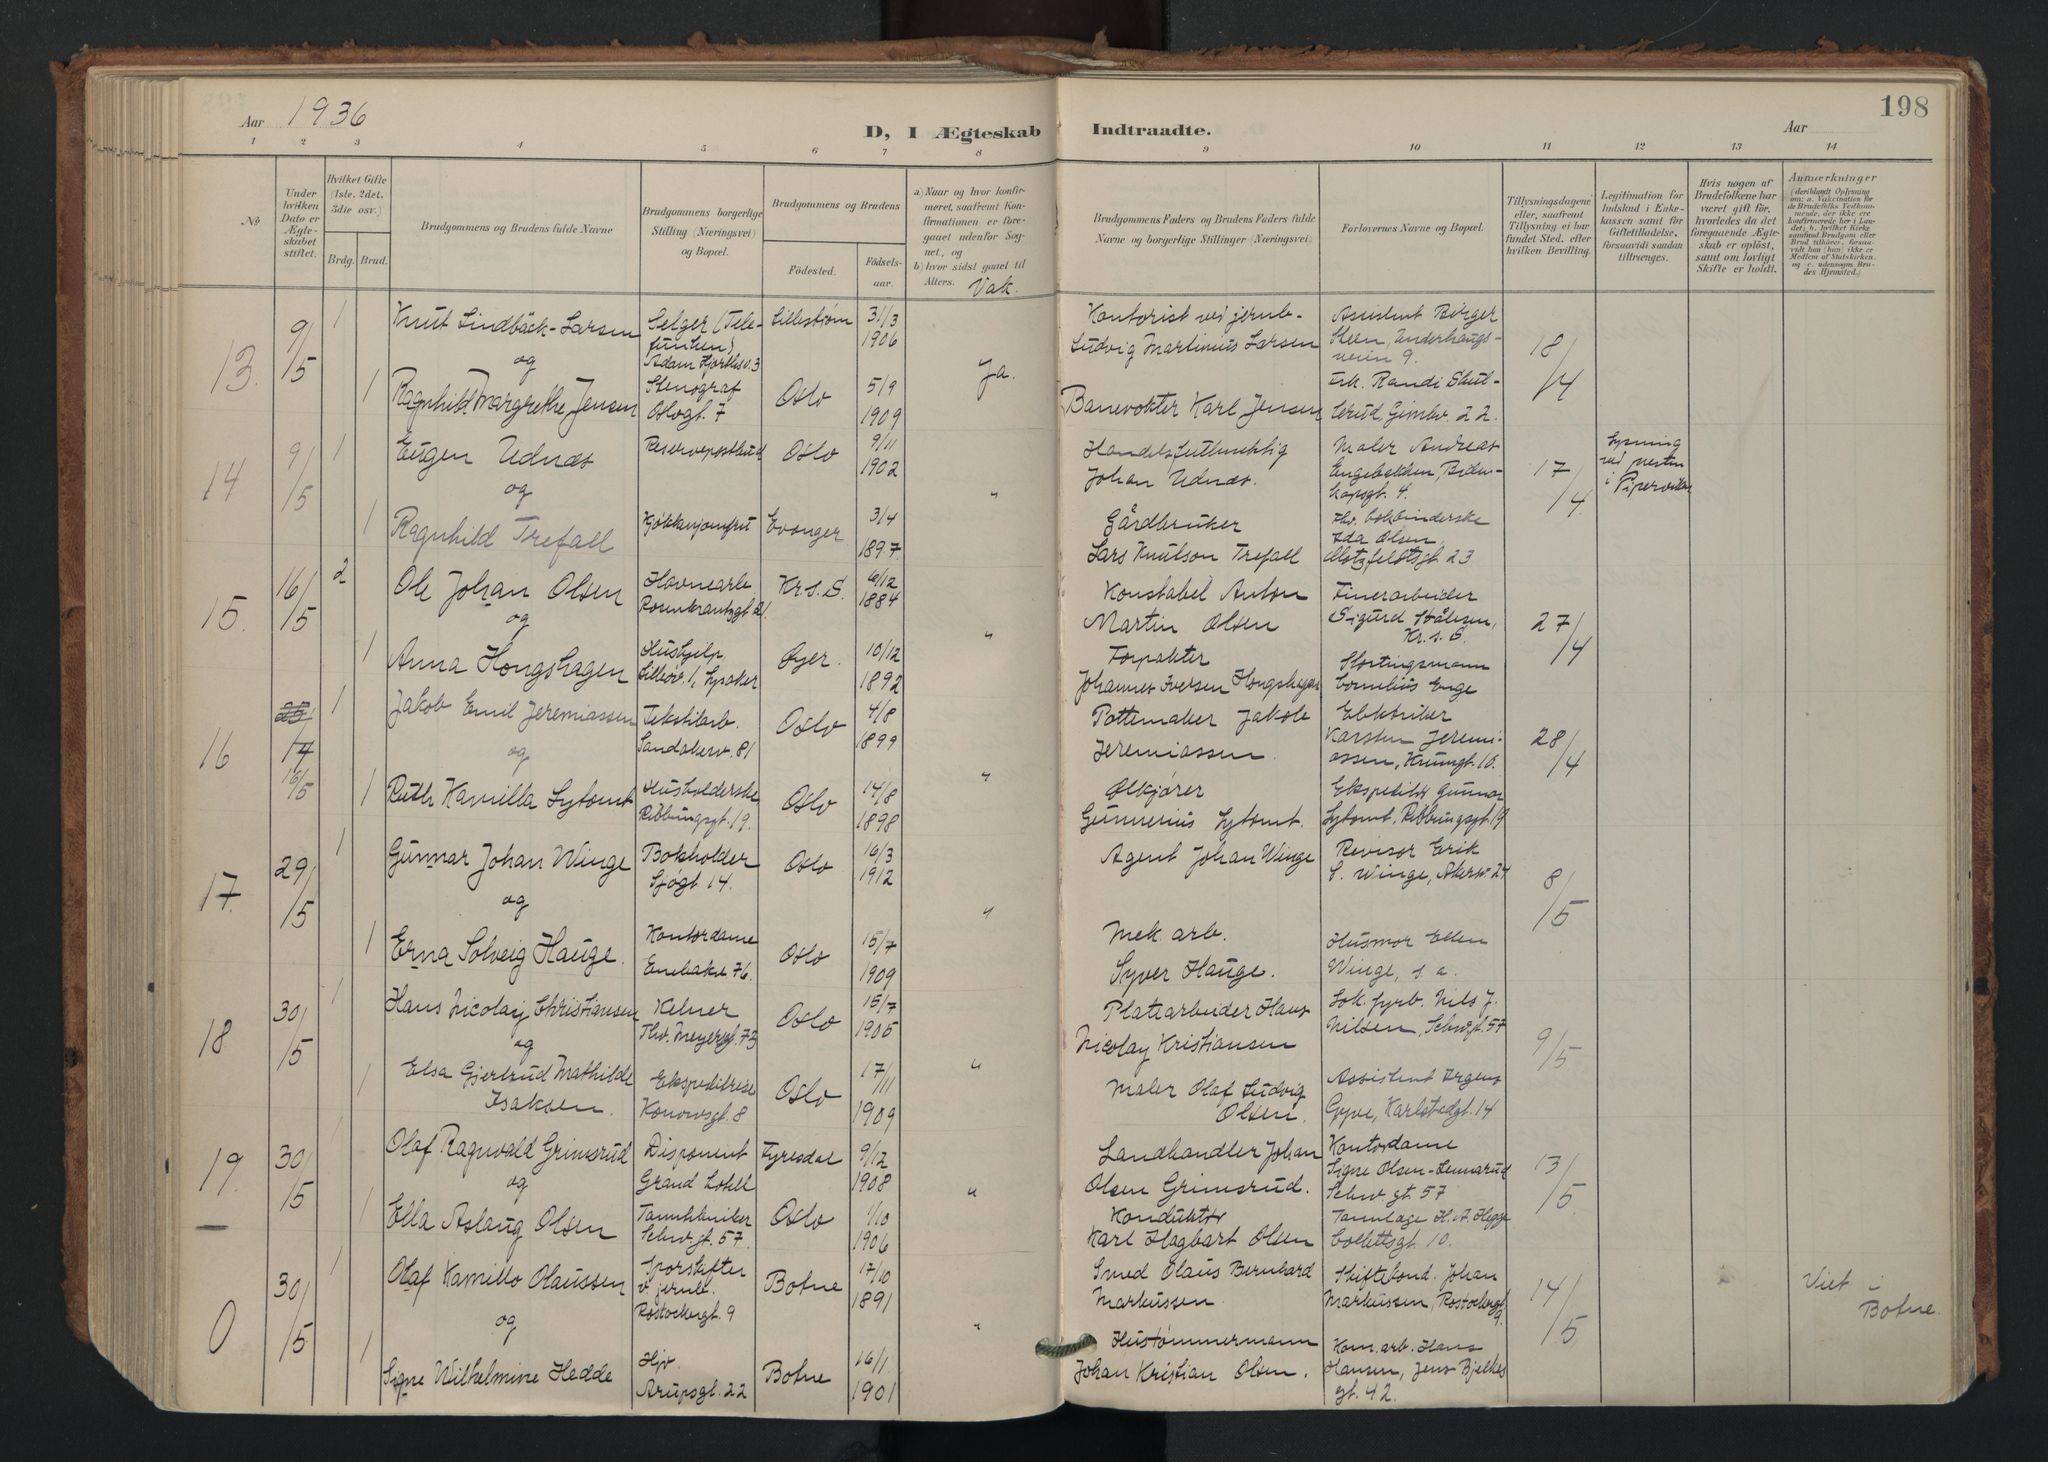 Aar 1936
D, I Ægteskab Indtraadte.
Aar
198
1 2 3 4 5 6 7 8 9 10 11 12 13 14
No
Under hvilken Dato er Ægteskabet stiftet.
Hvilket Gifte (1ste, 2det, 3die osv.)
Brdg. Brud.
Brudgommens og Brudens fulde Navne
Brudgommens borgerlige Stilling (Næringsvei) og Bopæl.
Brudgommens og Brudens
Födested. Födsels-aar.
a) Naar og hvor konfirmeret, saafremt Konfirmationen er foregaaet udenfor Sognet, og
b) hvor sidst gaaet til Alters.
Vak.
Brudgommens Faders og Brudens Faders fulde Navne og borgerlige Stillinger (Næringsvei)
Forlovernes Navne og Bopæl.
Tillysningsdagene eller, saafremt Tillysning ei har fundet Sted, efter hvilken Bevilling.
Legitimation for Indskud i Enkekassen samt for Giftetilladelse, forsaavidt saadan tiltrænges.
Hvis nogen af Brudefolkene har været gift för, hvorledes da det foregaaende Ægteskab er oplöst, samt om lovligt Skifte er holdt.
Anmærkninger
(deriblandt Oplysning om: a. Vakcination for Brudefolks Vedkommende, der ikke ere konfirmerede her i Landet; b. hvilket Kirkesamfund Brudgom eller Brud tilhører, forsaavidt han (hun) ikke er Medlem af Statskirken, og c. udensogns Brudes Hjemsted.)
13. 9/5 1 Knut Lindbäck-Larsen Selger (Telefunken) Adam Hjorthsv. 3 Lillestrøm 31/3 1906 Kontorist ved jernb. Ludvig Martinius Larsen Assistent Birger Steen, Underhaugsveien 9. 18/4
og Ja.
1 Ragnhild Margrethe Jensen Stenograf Oslogt. 7 Oslo 5/9 1909 Banevokter Karl Jensen Frk. Randi Skulserud, Gimlev. 22.
14 9/5 1 Eugen Udnæs Reservepostbud Oslo 9/11 1902 Handelsfullmektig Johan Udnæs. Maler Andreas Engebakken, Bidenkapsgt. 4. 17/4 Lysning ved presten i Pipervika
og "
1 Ragnhild Trefall Kjøkkenjomfru Evanger 3/4 1897. Gårdbruker Lars Knutson Trefall Fhv. bokbinderske Ida Olsen, Motzfeldtsgt. 23
15. 16/5 2 Ole Johan Olsen Havnearb. Rosenkrantzgt. 21 Kr.s.S. 6/12 1884 Konstabel Anton Martin Olsen Finerarbeider Sigurd Stålesen, Kr.s.S. 27/4
og "
1 Anna Hongshagen Hushjelp Lilleøv. 1, Lysaker Øyer. 10/12 1892 Forpakter Johannes Iversen Hongshagen Stortingsmann Cornelius Enge
16 16/5 1 Jakob Emil Jeremiassen Tekstilarb. Sandakerv. 81 Oslo 4/8 1899 Pottemaker Jakob Jeremiassen Elektriker Karsten Jeremiassen, Krumgt. 10. 28/4
og "
1 Ruth Kamilla Lytomt Husholderske Ribbungsgt. 19. Oslo 14/8 1898 Ølkjører Gunnerius Lytomt. Ekspeditør Gunnar Lytomt, Ribbungsgt. 19
17. 29/5 1 Gunnar Johan Winge Bokholder Sjøgt. 14. Oslo 16/3 1912 Agent Johan Winge Revisor Erik S. Winge, Akersv. 24 8/5
og "
1 Erna Solveig Hauge. Kontordame Enebakv. 76. Oslo 15/7 1909 Mek. arb. Syver Hauge. Husmor Ellen Winge, s.a.
18 30/5 1 Hans Nicolay Christiansen Kelner Thv. Meyersgt. 73 Oslo 15/7 1905 Platearbeider Hans Nicolay Kristiansen Lok. fyrb. Nils J. Nilsen, Schw.gt. 57 9/5
og "
1 Elsa Gjertrud Mathilde Isaksen. Ekspeditrise Konowsgt. 8 Oslo 17/11 1909 Maler Olaf Ludvig Olsen. Assistent Jrgens Gyve, Karlstadgt. 14
19. 30/5 1 Olaf Ragnvald Grimsrud Disponent Grand hotell Fyresdal 9/12 1908 Landhandler Johan Olsen Grimsrud. Kontordame Signe Olsen-Lennerud Schw.gt. 57 13/5
og "
1 Ella Aslaug Olsen Tanntekniker Schw.gt. 57. Oslo 1/10 1906 Konduktør Karl Hagbart Olsen Tannlæge H. A. Hegge Collettsgt. 10.
0 30/5 1 Olaf Kamillo Olaussen Sporskifter v. jernb. Rostockergt. 9 Botne 17/10 1891 Smed Olaus Bernhard Markussen. Skiftekond. Johan Markussen, Rostockergt. 9. 14/5 Viet i Botne.
og "
1 Signe Wilhelmine Hedde Hjv. Arupsgt. 22 Botne 16/1 1901 Hustømmermann Johan Kristian Olsen. Kom. arb. Hans Hansen, Jens Bjelkes gt. 42.